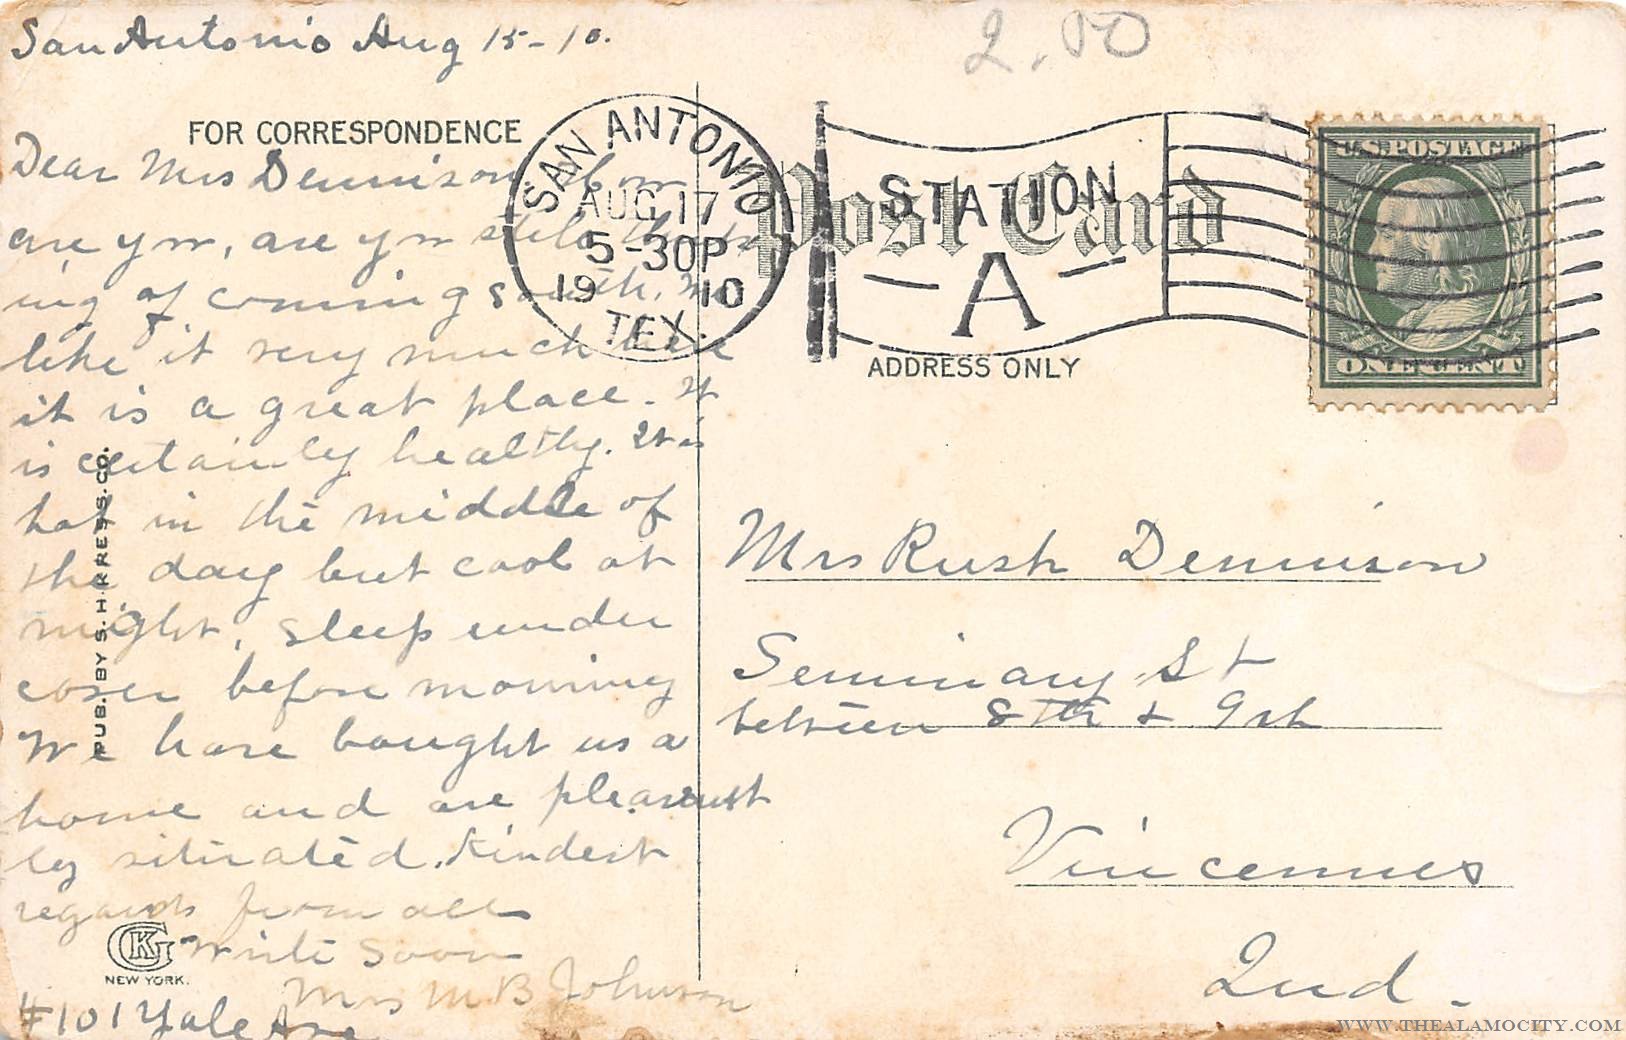 San Antonio Aug 15-10.
2.00
FOR CORRESPONDENCE
Dear Mrs Dennison how
are you, are you still think
ing of coming south. We
like it very much here
it is a great place. It
is certainly healthy. It is
hot in the middle of
the day but cool at
night, sleep under
cover before morning
We have bought us a
home and are pleasant
ly situated. Kindest
regards from all
Write soon
Mrs M B Johnson
#101 Yale Ave
PUB. BY S. H. KRESS. CO.
KG
NEW YORK.
SAN ANTONIO
AUG 17
5-30P
1910
TEX.
Post Card
STATION
A
ADDRESS ONLY
U.S. POSTAGE
ONE CENT
Mrs Rush Dennison
Seminary St
between 8th & 9th
Vincennes
Ind.
WWW.THEALAMOCITY.COM